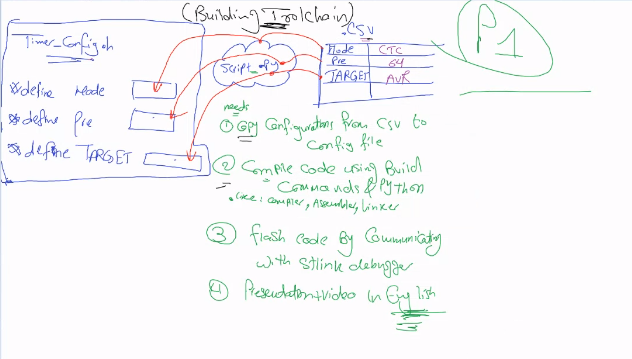 (Building ToolChain)
P1
Timer_Config.h
#define Mode
#define Pre
#define TARGET
Script.py
.CSV
Mode CTC
Pre 64
TARGET AVR
needs
① Copy Configurations from CSV to
Config file
② Compile code using Build
Commands & Python
. use: compiler, Assembler, Linker
③ Flash code By Communicating
with Stlink debugger
④ Presentation+video in English